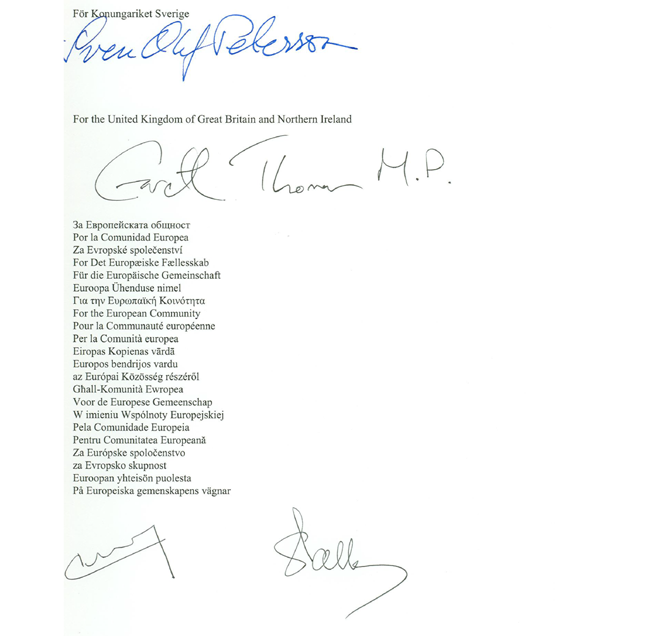 För Konungariket Sverige
Sven Olof Petersson
For the United Kingdom of Great Britain and Northern Ireland
Gareth Thomas M.P.
За Европейската общност
Por la Comunidad Europea
Za Evropské společenství
For Det Europæiske Fællesskab
Für die Europäische Gemeinschaft
Euroopa Ühenduse nimel
Για την Ευρωπαϊκή Κοινότητα
For the European Community
Pour la Communauté européenne
Per la Comunità europea
Eiropas Kopienas vārdā
Europos bendrijos vardu
az Európai Közösség részéről
Għall-Komunità Ewropea
Voor de Europese Gemeenschap
W imieniu Wspólnoty Europejskiej
Pela Comunidade Europeia
Pentru Comunitatea Europeană
Za Európske spoločenstvo
za Evropsko skupnost
Euroopan yhteisön puolesta
På Europeiska gemenskapens vägnar